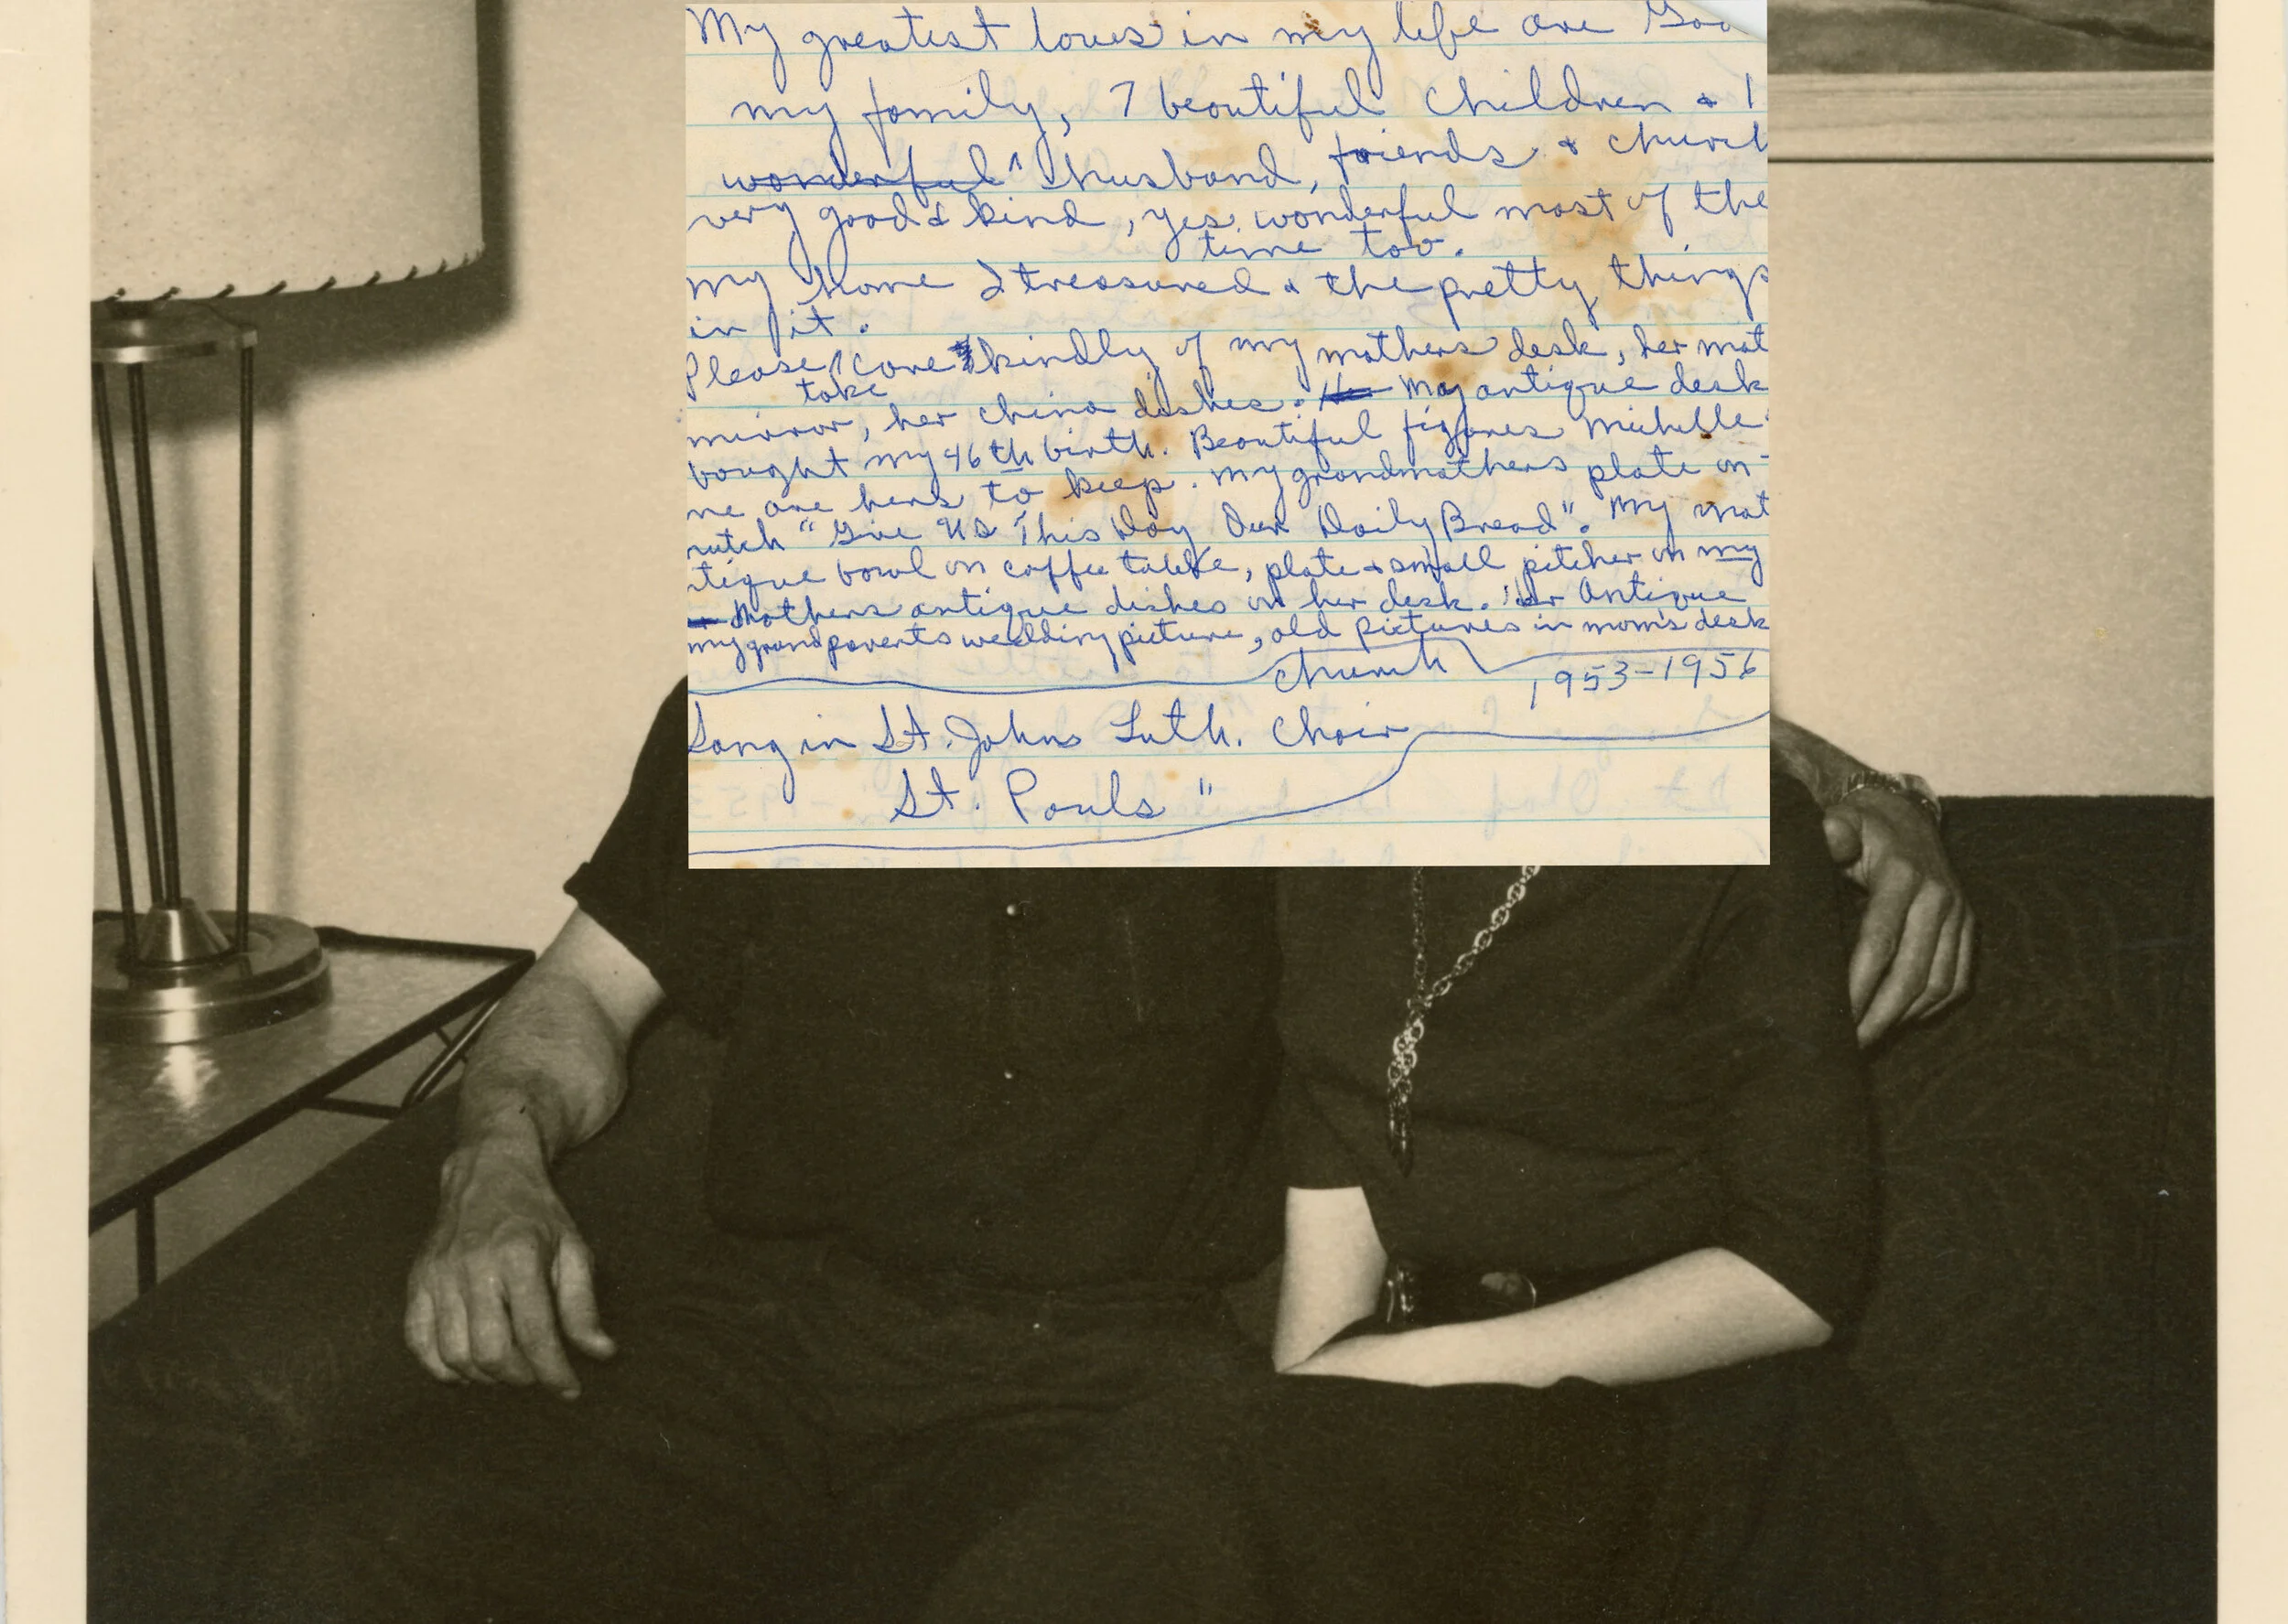 My greatest loves in my life are God
my family, 7 beautiful children & 1
wonderful husband, friends & church
very good & kind, yes wonderful most of the
time too.
my home I treasured & the pretty things
in it.
Please take care kindly of my mothers desk, her mot
mirror, her china dishes. My antique desk
bought my 46th birth. Beautiful figures Michelle
me are hers to keep. My grandmothers plate on
rutch "Give Us This Day Our Daily Bread". My mot
tique bowl on coffee table, plate & small pitcher on my
Mothers antique dishes on her desk. Her Antique
my grandparents wedding picture, old pictures in mom's desk
church 1953-1956
Sang in St. Johns Luth. Choir
St. Pauls "